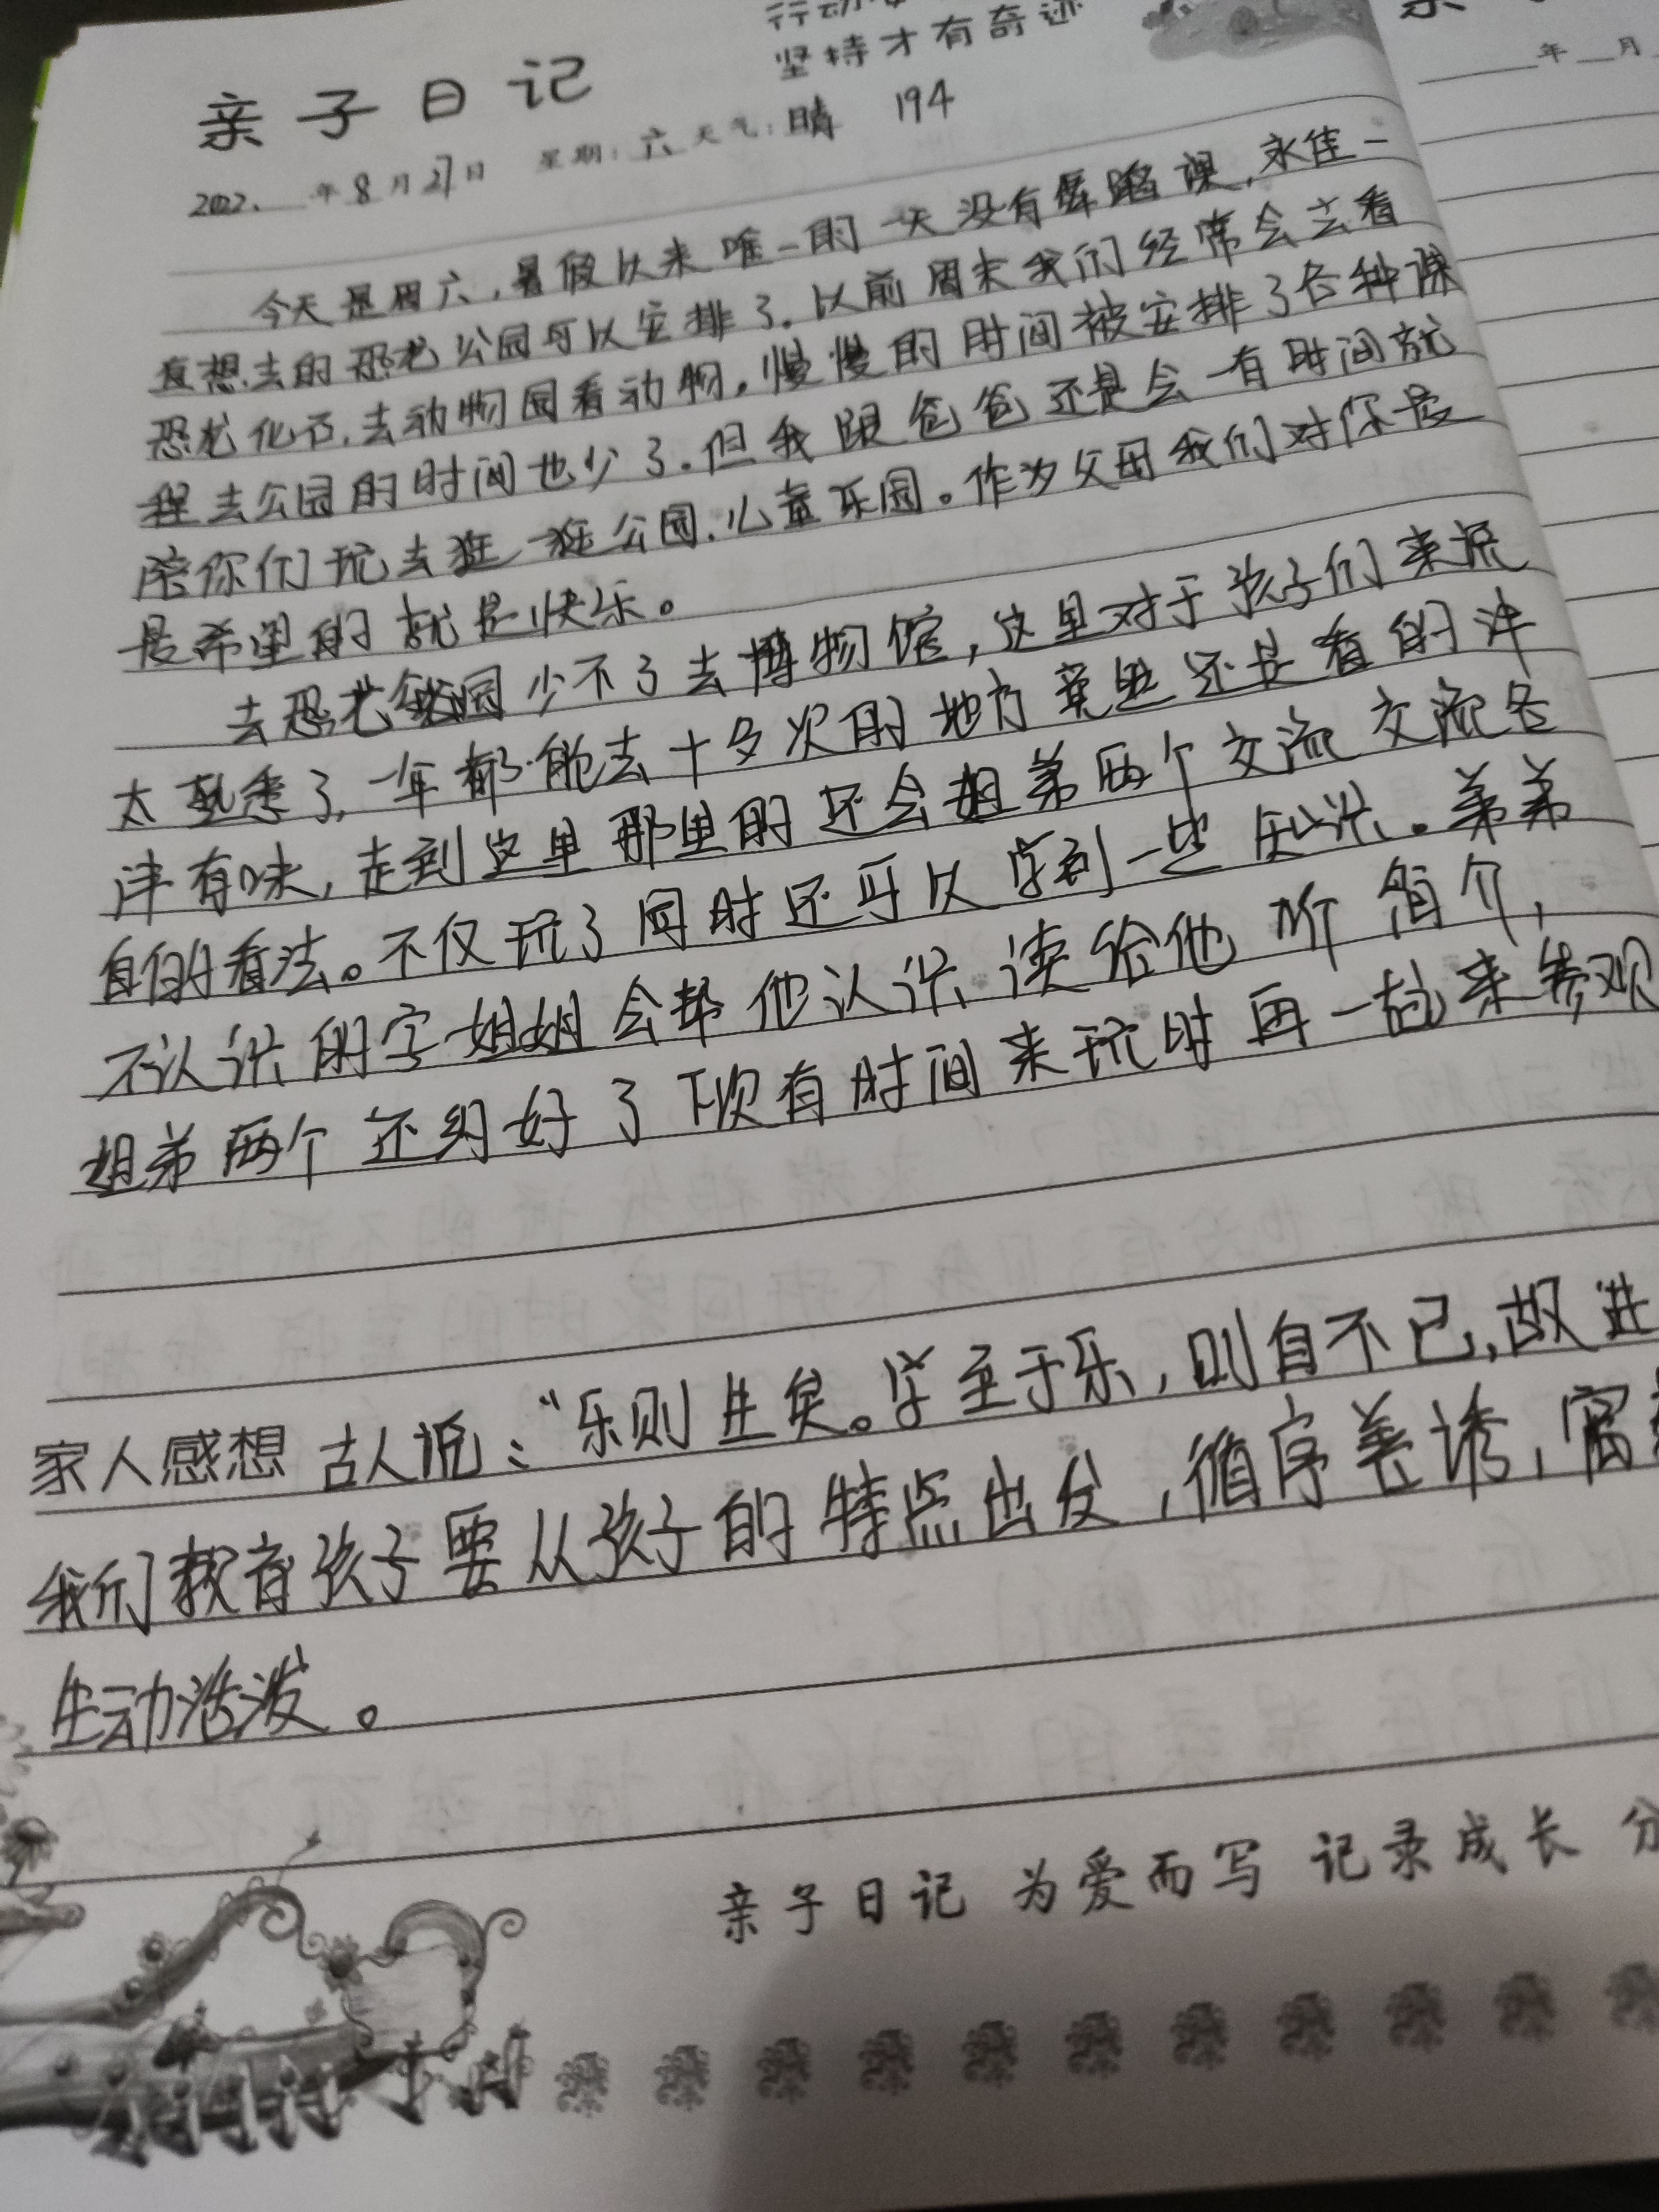 行动
坚持才有奇迹
亲子日记
2022.年8月27日 星期:六 天气:晴 194
今天是周六,暑假以来唯一的一天没有舞蹈课,永佳一
直想去的恐龙公园可以安排了.以前周末我们经常会去看
恐龙化石,去动物园看动物。慢慢的时间被安排了各种课
程去公园的时间也少了.但我跟爸爸还是会一有时间就
陪你们玩去逛一逛公园.儿童乐园。作为父母我们对你最
最希望的就是快乐。
去恐龙园少不了去博物馆,这里对于孩子们来说
太熟悉了,一年都能去十多次的地方竟然还是看的津
津有味,走到这里那里的还会姐弟两个交流交流各
自的看法。不仅玩了同时还可以学到一些知识.弟弟
不认识的字姐姐会帮他认识读给他听
姐弟两个还约好了下次有时间来玩时再一起来参观
家人感想 古人说:“乐则生矣。学至于乐,则自不已,故进
我们教育孩子要从孩子的特点出发,循序善诱,寓
生动活泼。
亲子日记 为爱而写 记录成长 分
亲子
年 月